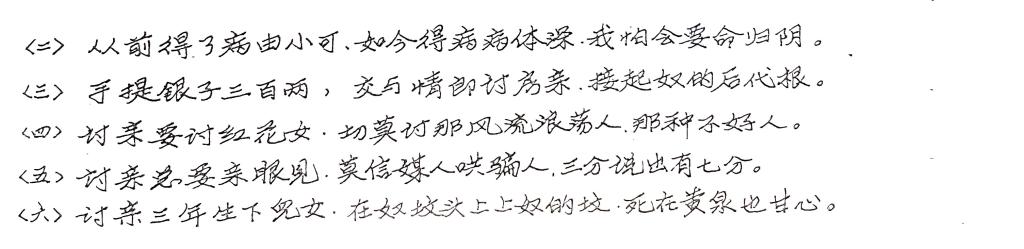 〈二〉从前得了病由小可、如今得病病体深.我怕会要命归阴。
〈三〉手提银子三百两，交与情郎讨房亲.接起奴的后代根。
〈四〉讨亲要讨红花女.切莫讨那风流浪荡人.那种不好人。
〈五〉讨亲总要亲眼见.莫信媒人哄骗人.三分说出有七分。
〈六〉讨亲三年生下儿女.在奴坟头上上奴的坟.死在黄泉也甘心。